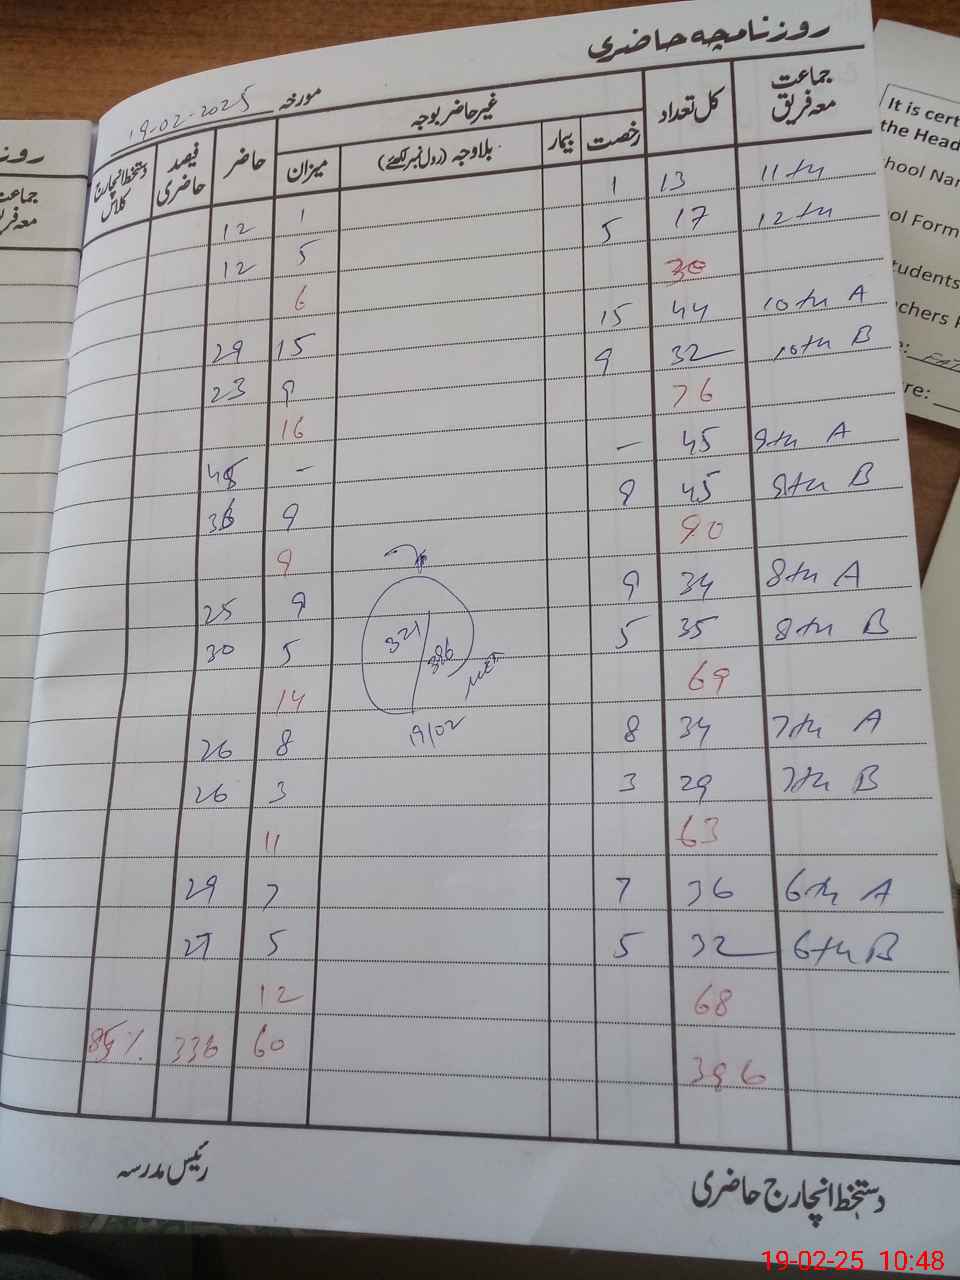 روزنامچہ حاضری
مورخہ 19-02-2025
جماعت معہ فریق
کل تعداد
غیر حاضر بوجہ
رخصت
بیمار
بلاوجہ (رول نمبر لکھئے)
میزان
حاضر
فیصد حاضری
دستخط انچارج کلاس
11th 13 1 1 12
12th 17 5 5 12
30 6
10th A 44 15 15 29
10th B 32 9 9 23
76 16
9th A 45 - - 45
9th B 45 9 9 36
90 9
8th A 34 9 9 25
8th B 35 5 5 30
69 14
7th A 34 8 8 26
7th B 29 3 3 26
63 11
6th A 36 7 7 29
6th B 32 5 5 27
68 12
396 60 336 85%
321
386
19/02
رئیس مدرسہ
دستخط انچارج حاضری
It is cert
the Head
hool Nar
ol Form
tudents
chers
re:
روز
جماعت
معہ فریق
19-02-25 10:48